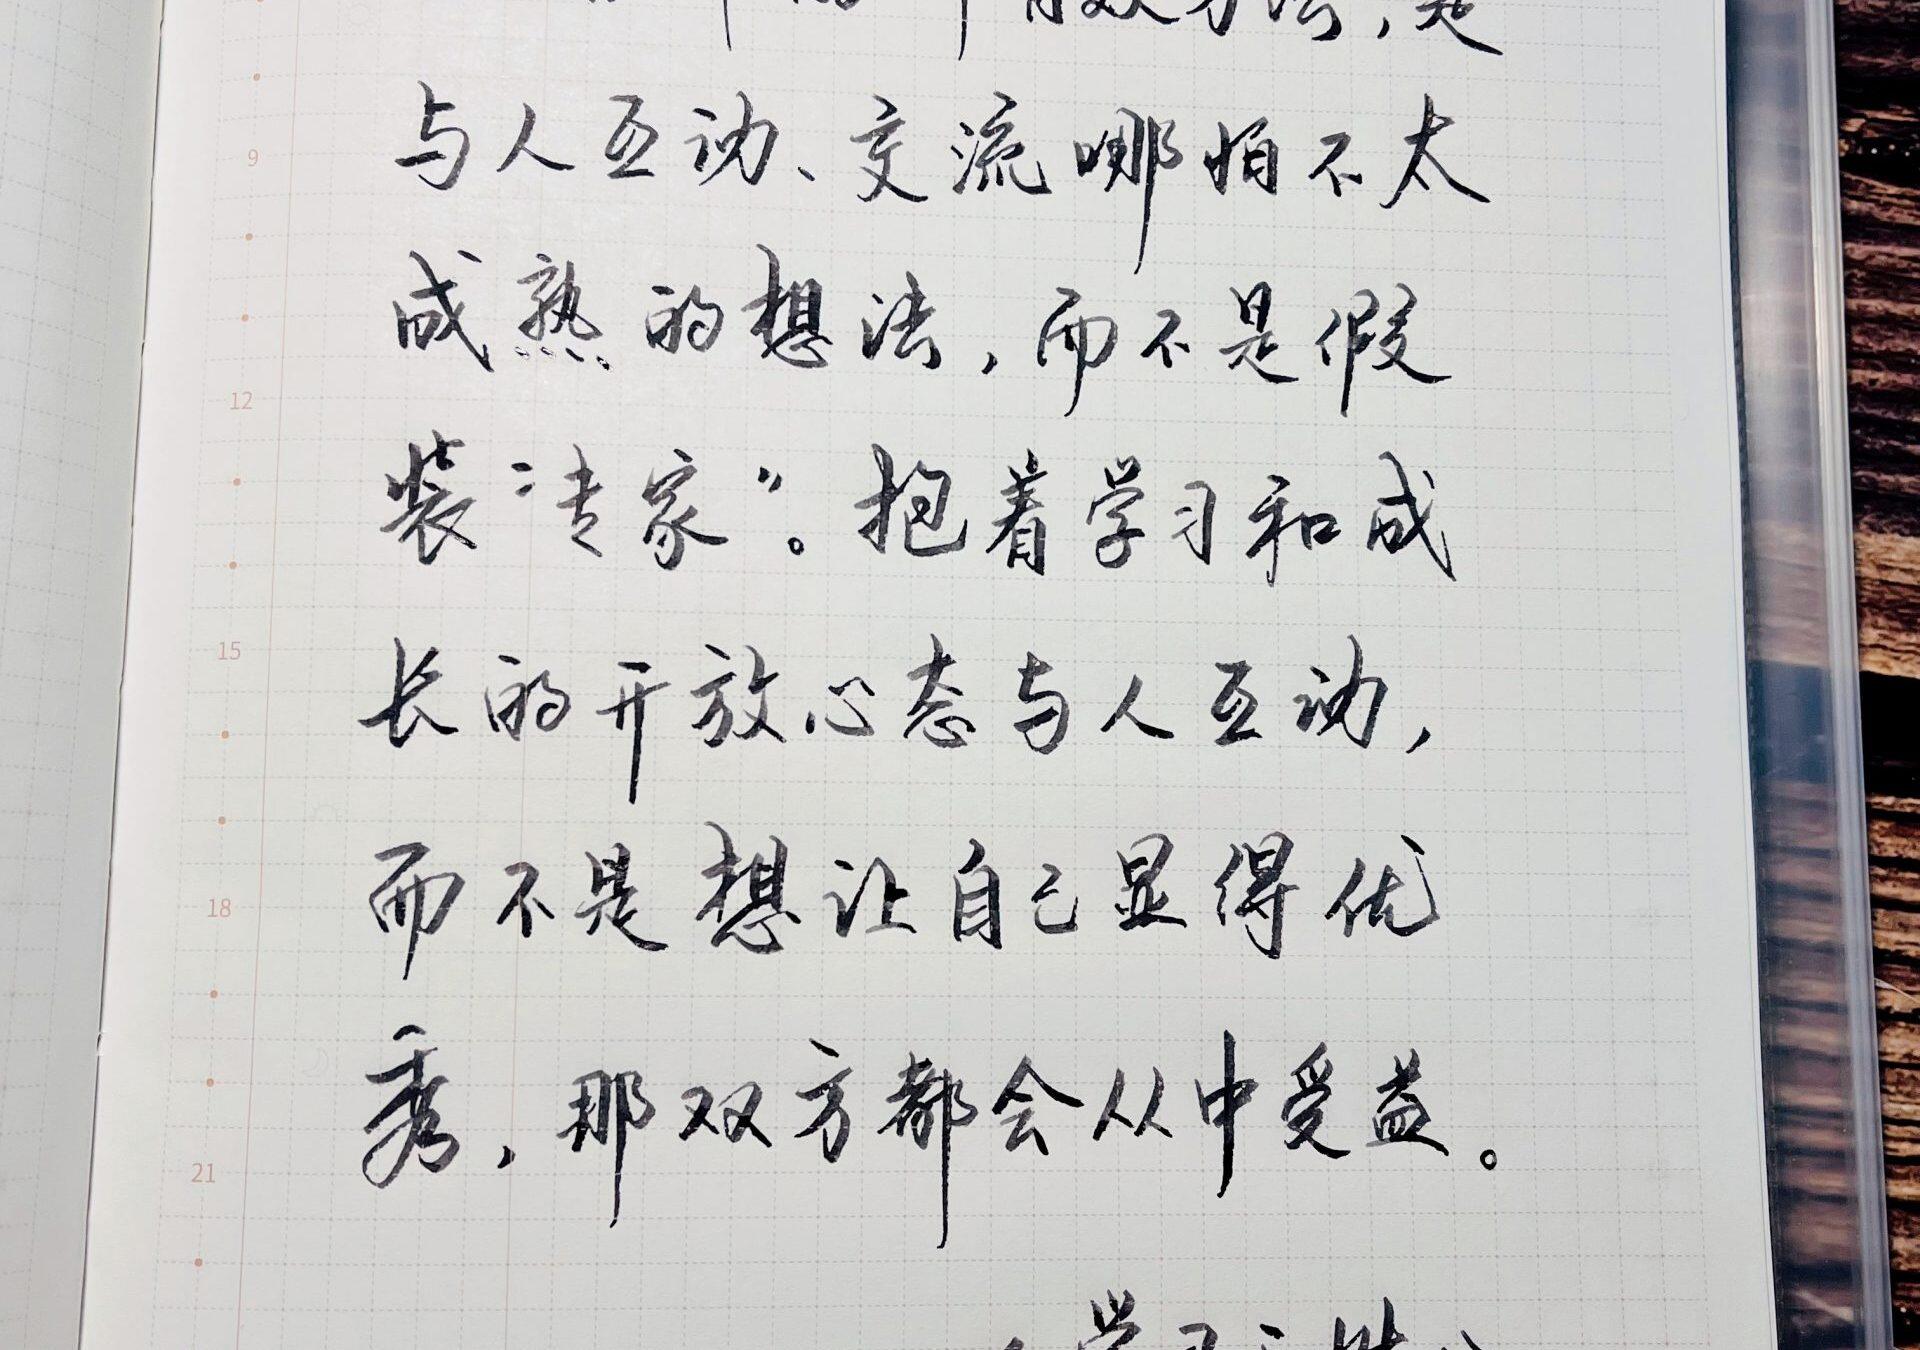 有效方法，是
与人互动、交流哪怕不太
成熟的想法，而不是假
装“专家”。抱着学习和成
长的开放心态与人互动，
而不是想让自己显得优
秀，那双方都会从中受益。
9
12
15
18
21